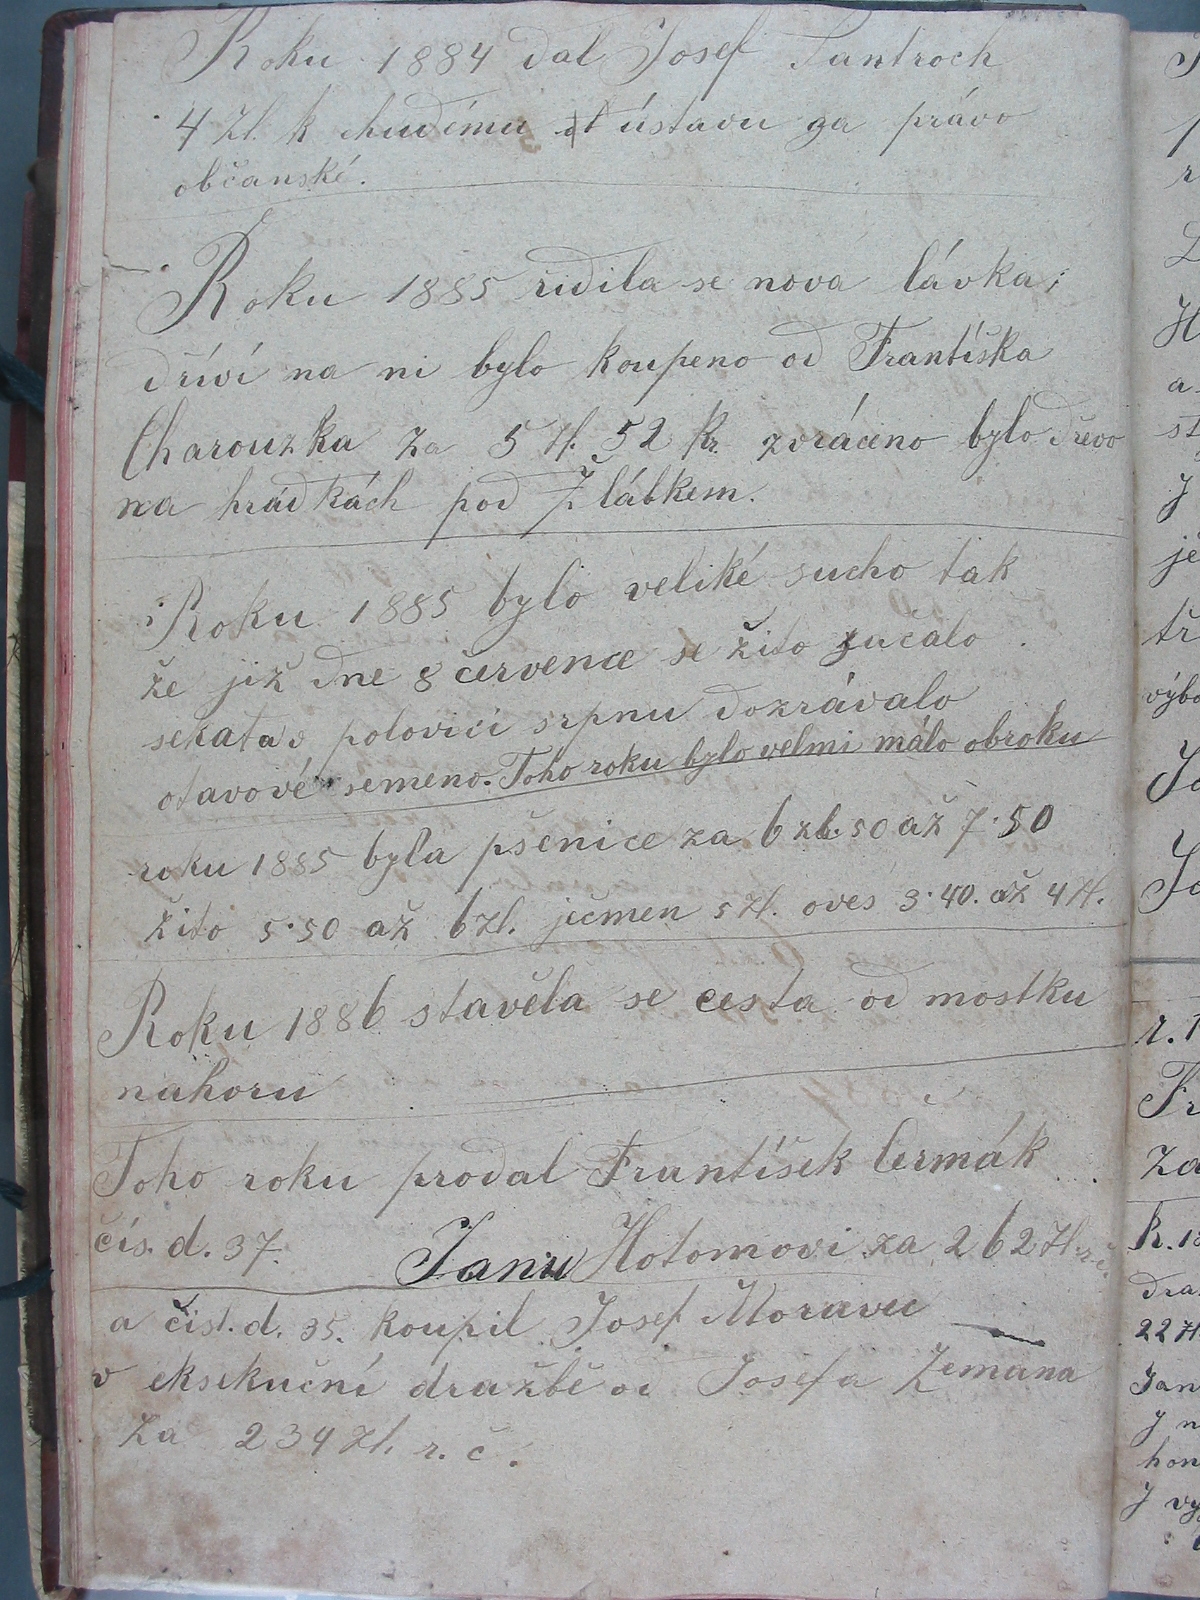 Roku 1884 dal Josef Šantroch
4 Zl. k chudému út ústavu za právo
občanské.
Roku 1885 řidila se nova lávka;
dříví na ni bylo koupeno od Frantíska
Charouzka za 5 Zl. 52 Kr. zvráceno bylo dřevo
na hrádkách pod Žlábkem.
Roku 1885 bylo veliké sucho tak
že již dne 8 července se žito začalo
sekata v polovici srpnu dozrávalo
otavové semeno. Toho roku bylo velmi málo obroku
roku 1885 byla pšenice za 6 zl. 50 až 7·50
žito 5·50 až 6 Zl. ječmen 5 Zl. oves 3·40. až 4 Zl.
Roku 1886 stavěla se cesta od mostku
nahoru
Toho roku prodal Frantíšek Čermák
čís. d. 37. Janu Hotomovi za 262 Zl. r. č.
a čísl. d. 35. koupil Josef Moravec
v eksekuční dražbě od Josefa Zemana
za 234 Zl. r. č.